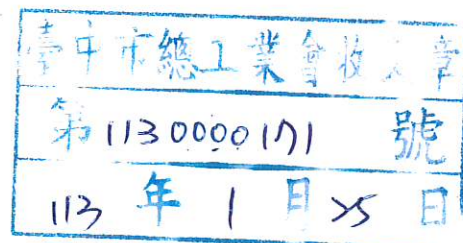 臺中市總工業會收文章
第1130000171號
113年1月25日